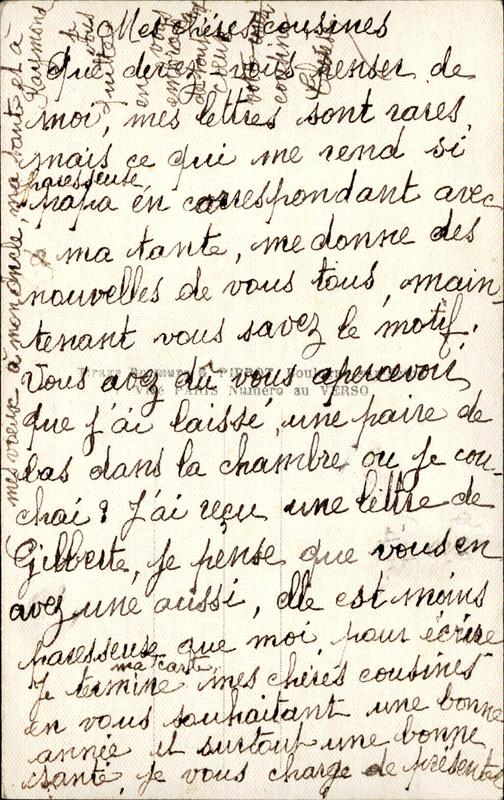 Mes chères cousines
Que devez vous penser de
moi, mes lettres sont rares,
mais ce qui me rend si
paresseuse
papa en correspondant avec
ma tante, me donne des
nouvelles de vous tous, main
tenant vous savez le motif.
Vous avez du vous apercevoir
que j'ai laissé, une paire de
bas dans la chambre ou je cou-
chai ? J'ai reçu une lettre de
Gilberte, je pense que vous en
avez une aussi, elle est moins
paresseuse que moi pour écrire
ma carte,
Je termine mes chères cousines
en vous souhaitant une bonne
année et surtout une bonne
santé, je vous charge de présenter
mes voeux à mon oncle, ma tante et à
Raymond
Je vous
quitte
en vous
embrassant
de tout
coeur
votre
cousine
PARIS Numéro au VERSO